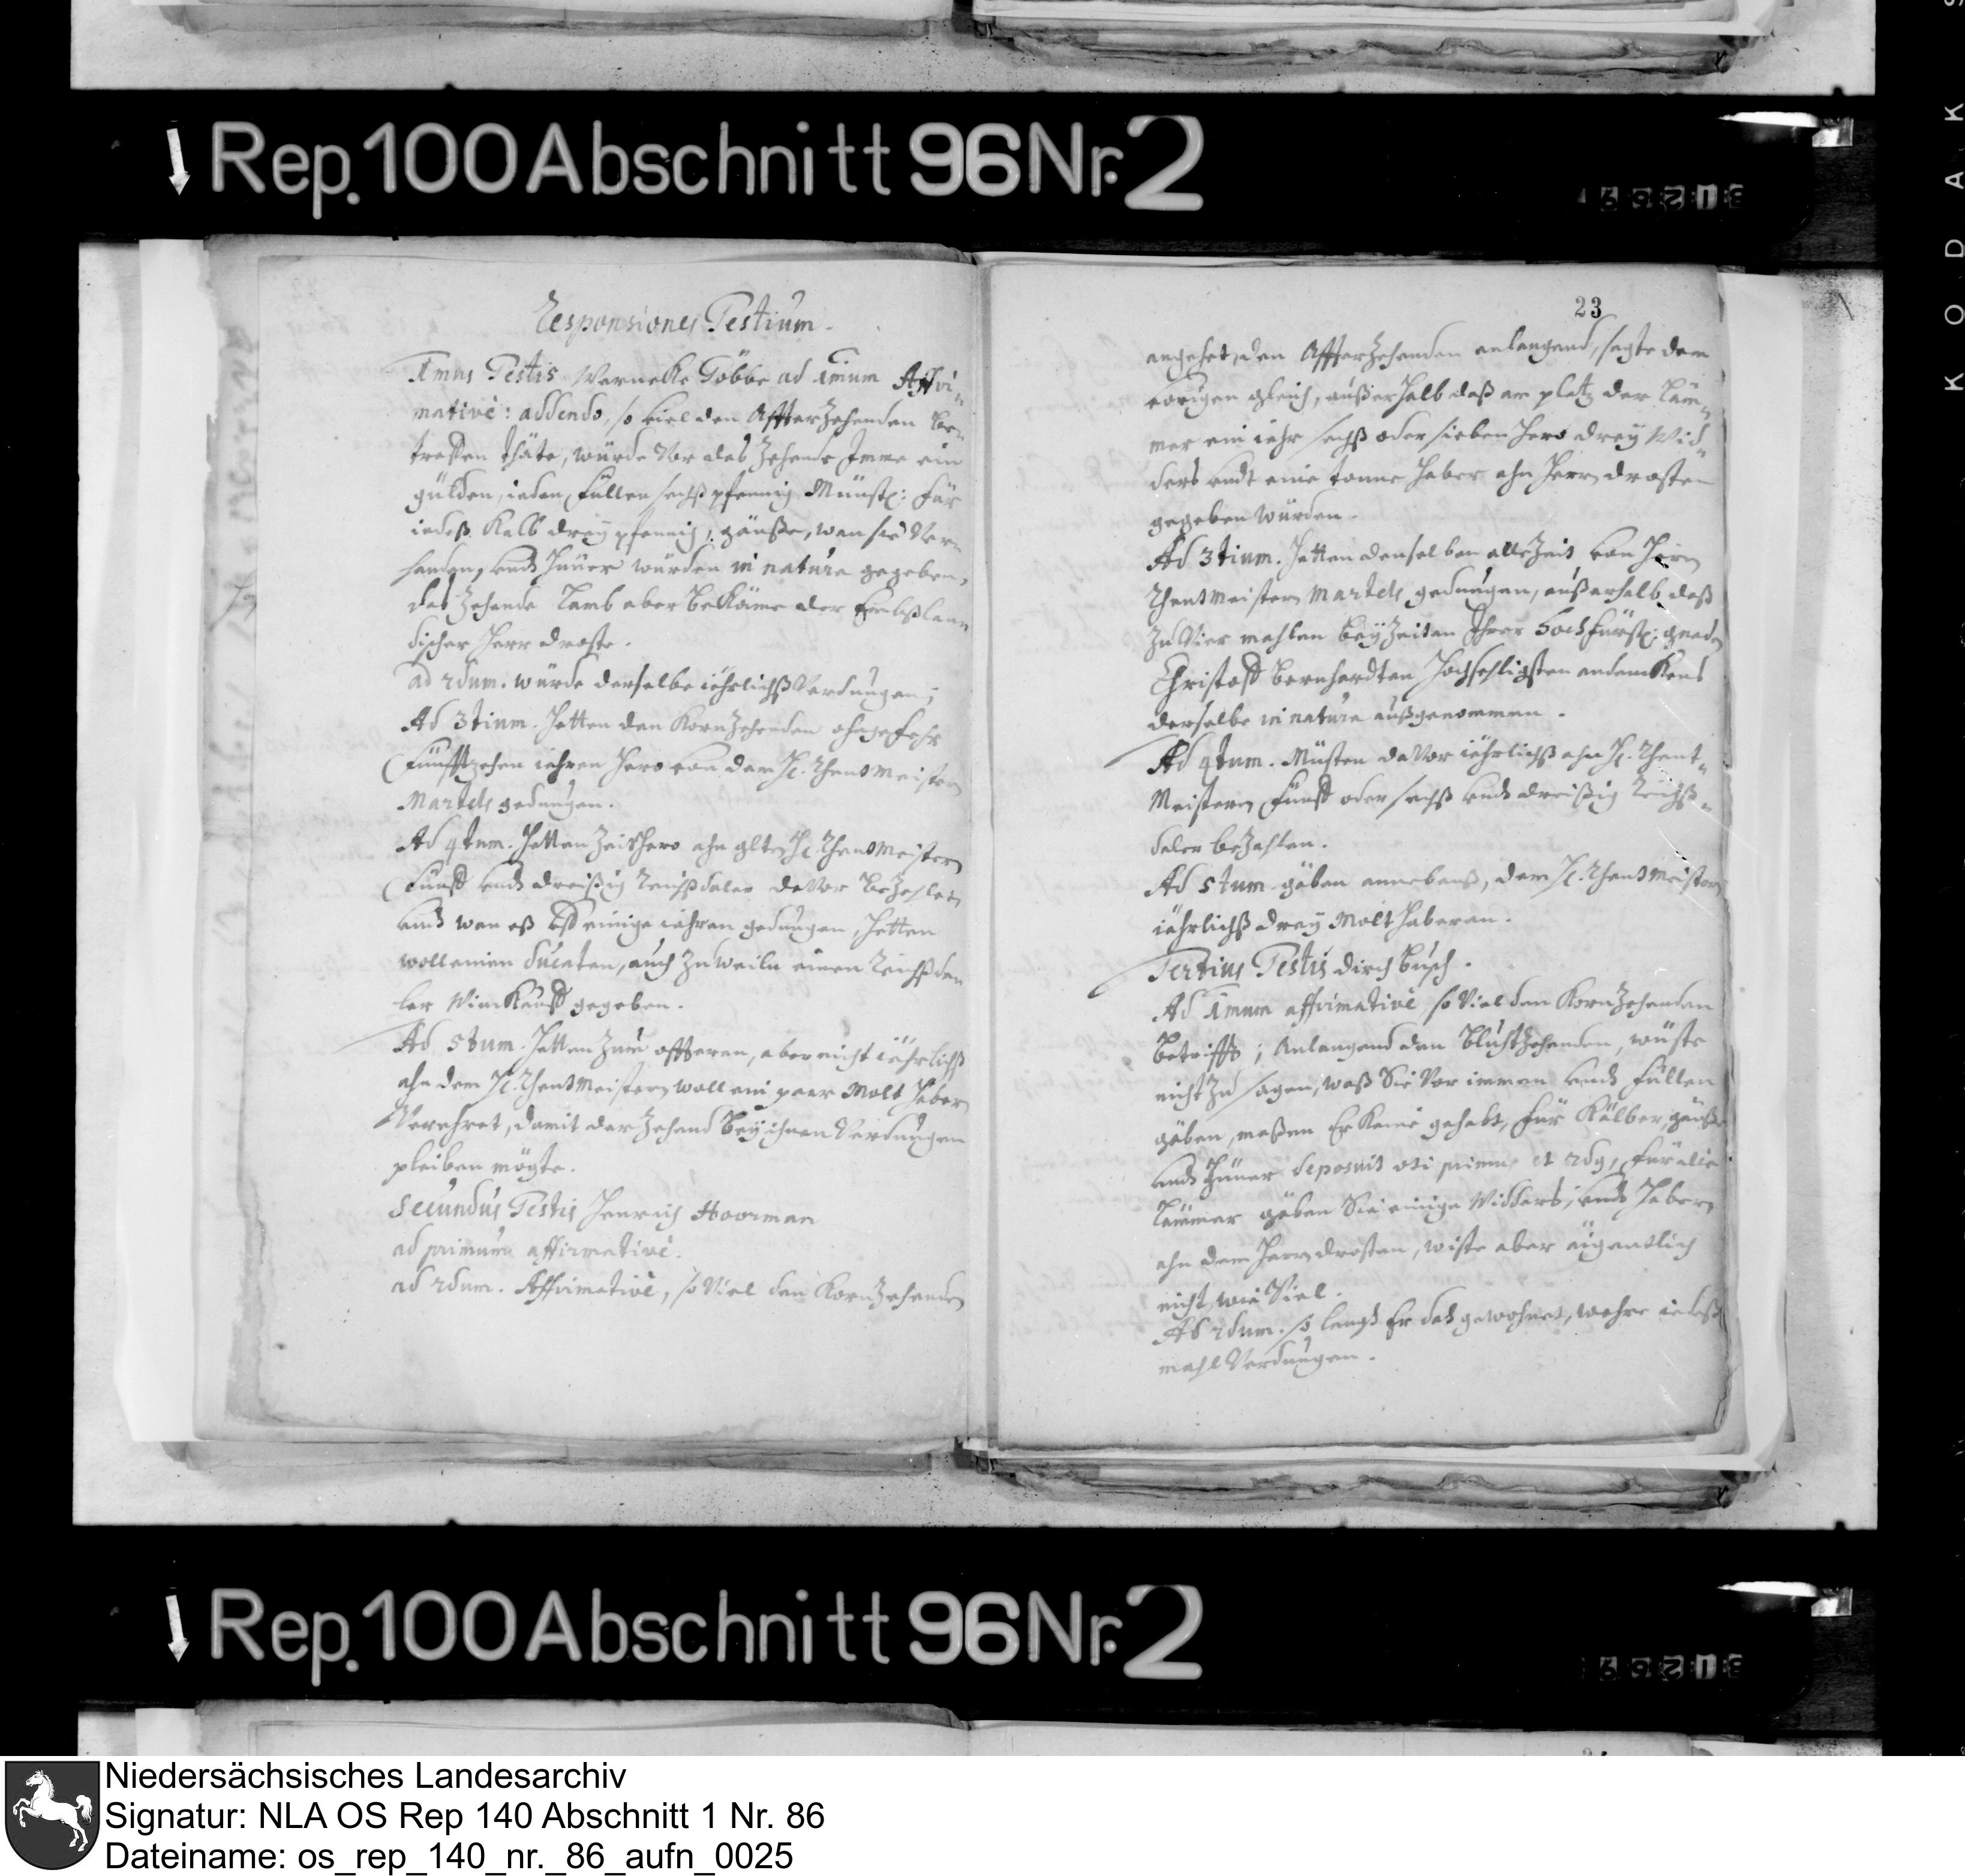 Rep. 100 Abschnitt 96 Nr. 2
Responsiones Testium.
1mus Testis Werneke Többe ad 1mum Affir¬
mativè: addendo, so viel den Affterzehenden be¬
treffen thäte, würde vor das zehende Imme ein
gülden, ieden Füllen sechß pfennig Münst: für
iedeß Kalb drey pfennig, gänße, wan sie Vor¬
handen, undt hüner würden in natura gegeben,
das zehende Lamb aber bekäme der Embßlan¬
discher Herr Droste.
ad 2dum. würde derselbe iährlichß Verdungen;
Ad 3tium. hetten den Kornzehenden ohngefehr
Fünffzehen iahren hero von dem H. Rhentmeistern
Martels gedungen.
Ad 4tum. hetten zeithero ahn gltn H. Rhentmeistern
Fünff undt dreißig Reichßdaler davor bezahlen
undt wan eß uff einige iahren gedungen, hetten
woll einen Ducaten, auch zuweiln einen Reichßda
ler Winkauff gegeben.
Ad 5tum. hetten zum offteren, aber nicht iährlichß
ahn dem H. Rhentmeistern woll ein paar Molt haber
Verehret, damit der zehend bey ihnen Verdungen
pleiben mögte.
Secundus Testis Henrich Hoorman
ad primum affirmativè.
ad 2dum. Affirmativè, so Viel den Kornzehenden
23
angehet, den Affterzehenden anlangend, sagte dem
vorigen gleich, außerhalb daß am platz der Läm¬
mer ein iahr sechß oder sieben hero drey Wid¬
ders undt eine tonne haber ahn Herrn Drosten
gegeben würden.
Ad 3tium. hetten denselben alle Zeit von Herrn
Rhentmeistern Martels gedungen, außerhalb daß
zu Vier mahlen bey Zeiten Ihrer Hochfürstl: gnaden
Christoff Bernhardten Hochsehligsten andenkens
derselbe in natura außgenommen.
Ad 4tum. Müsten davor iährlichß ahn H. Rhent¬
Meistern Fünff oder sechß undt dreißig Reichß¬
daler bezahlen.
Ad 5tum gäben annebenß, dem H. Rhentmeistern
iährlichß drey Molt haberen.
Tertius Testis Dirch Busch.
Ad 1mum affirmativè so Viel den Kornzehenden
betrifft; Anlangend den Bluhtzehenden, wüste
nicht zu sagen, waß Sie Vor immen undt Füllen
gäben, maßen Er keine gehabt, für Kälber, gänße
undt hüner deposuit uti primus et 2dus, für die
Lämmer gäben Sie einige Widders, undt habern
ahn dem Herrn Drosten, wiste aber äigentlich
nicht, wie Viel.
Ad 2dum. so langh Er dah gewohnet, wehre iedeß
mahl Verdungen.
Rep. 100 Abschnitt 96 Nr. 2
KODAK S
Niedersächsisches Landesarchiv
Signatur: NLA OS Rep 140 Abschnitt 1 Nr. 86
Dateiname: os_rep_140_nr._86_aufn_0025